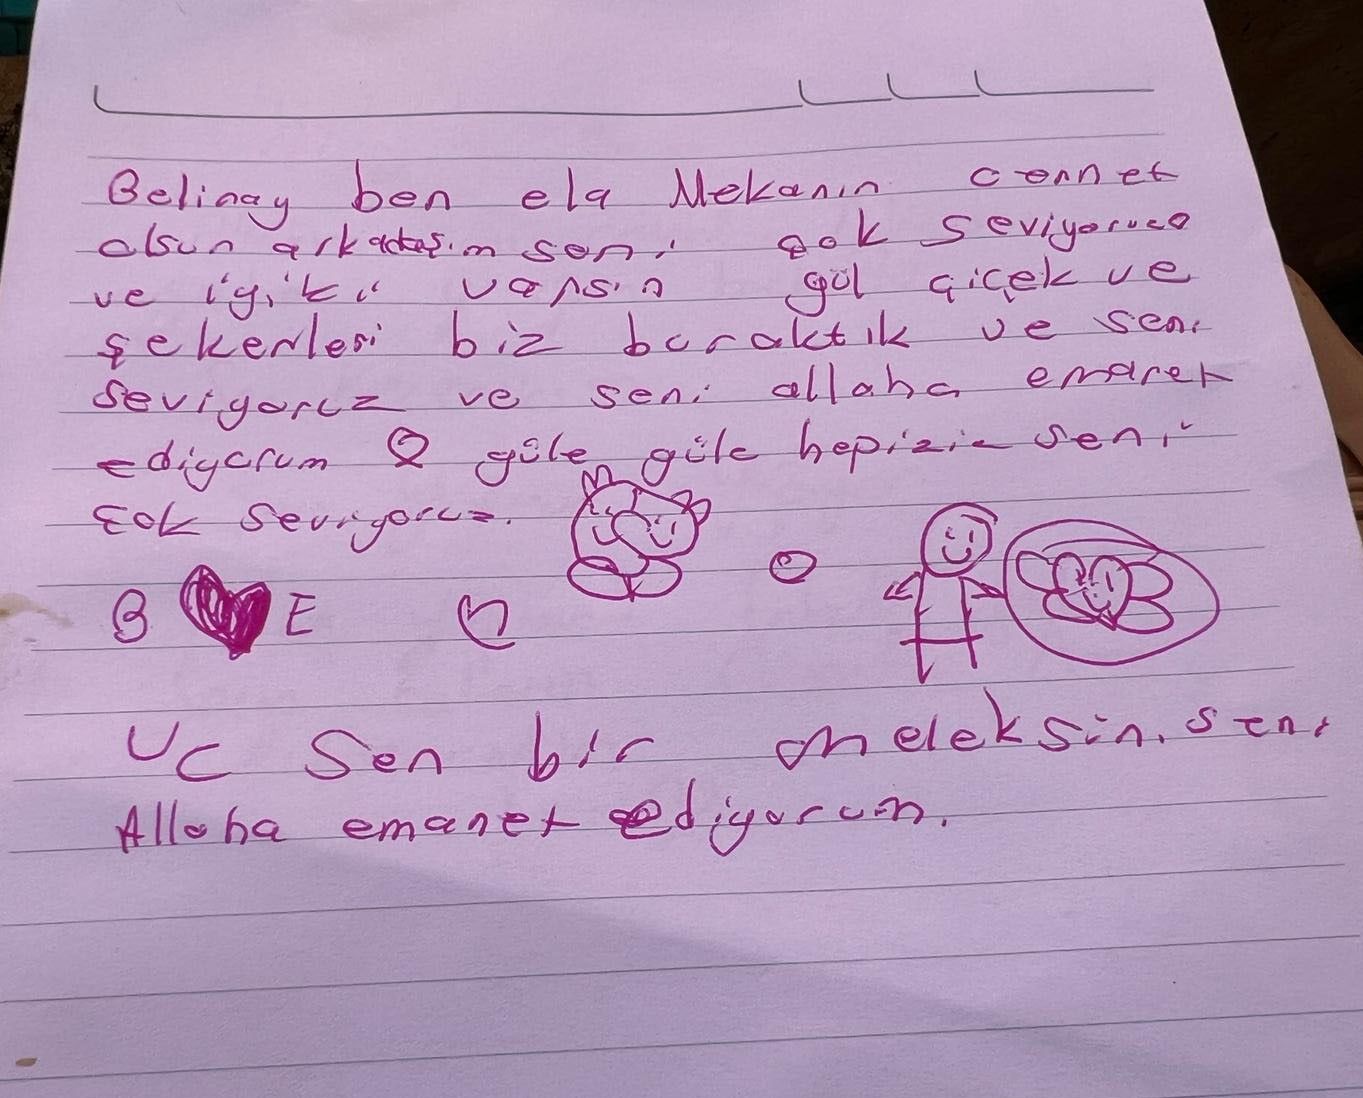 Belinay ben ela Mekanın cennet
olsun arkadaşım seni çok seviyoruz
ve iyiki varsın gül çiçek ve
şekerleri biz buraktık ve seni
seviyoruz ve seni allaha emanet
ediyorum güle güle hepizie seni
çok seviyoruz.
B E
Uc Sen bir meleksin. seni
Allaha emanet ediyorum.